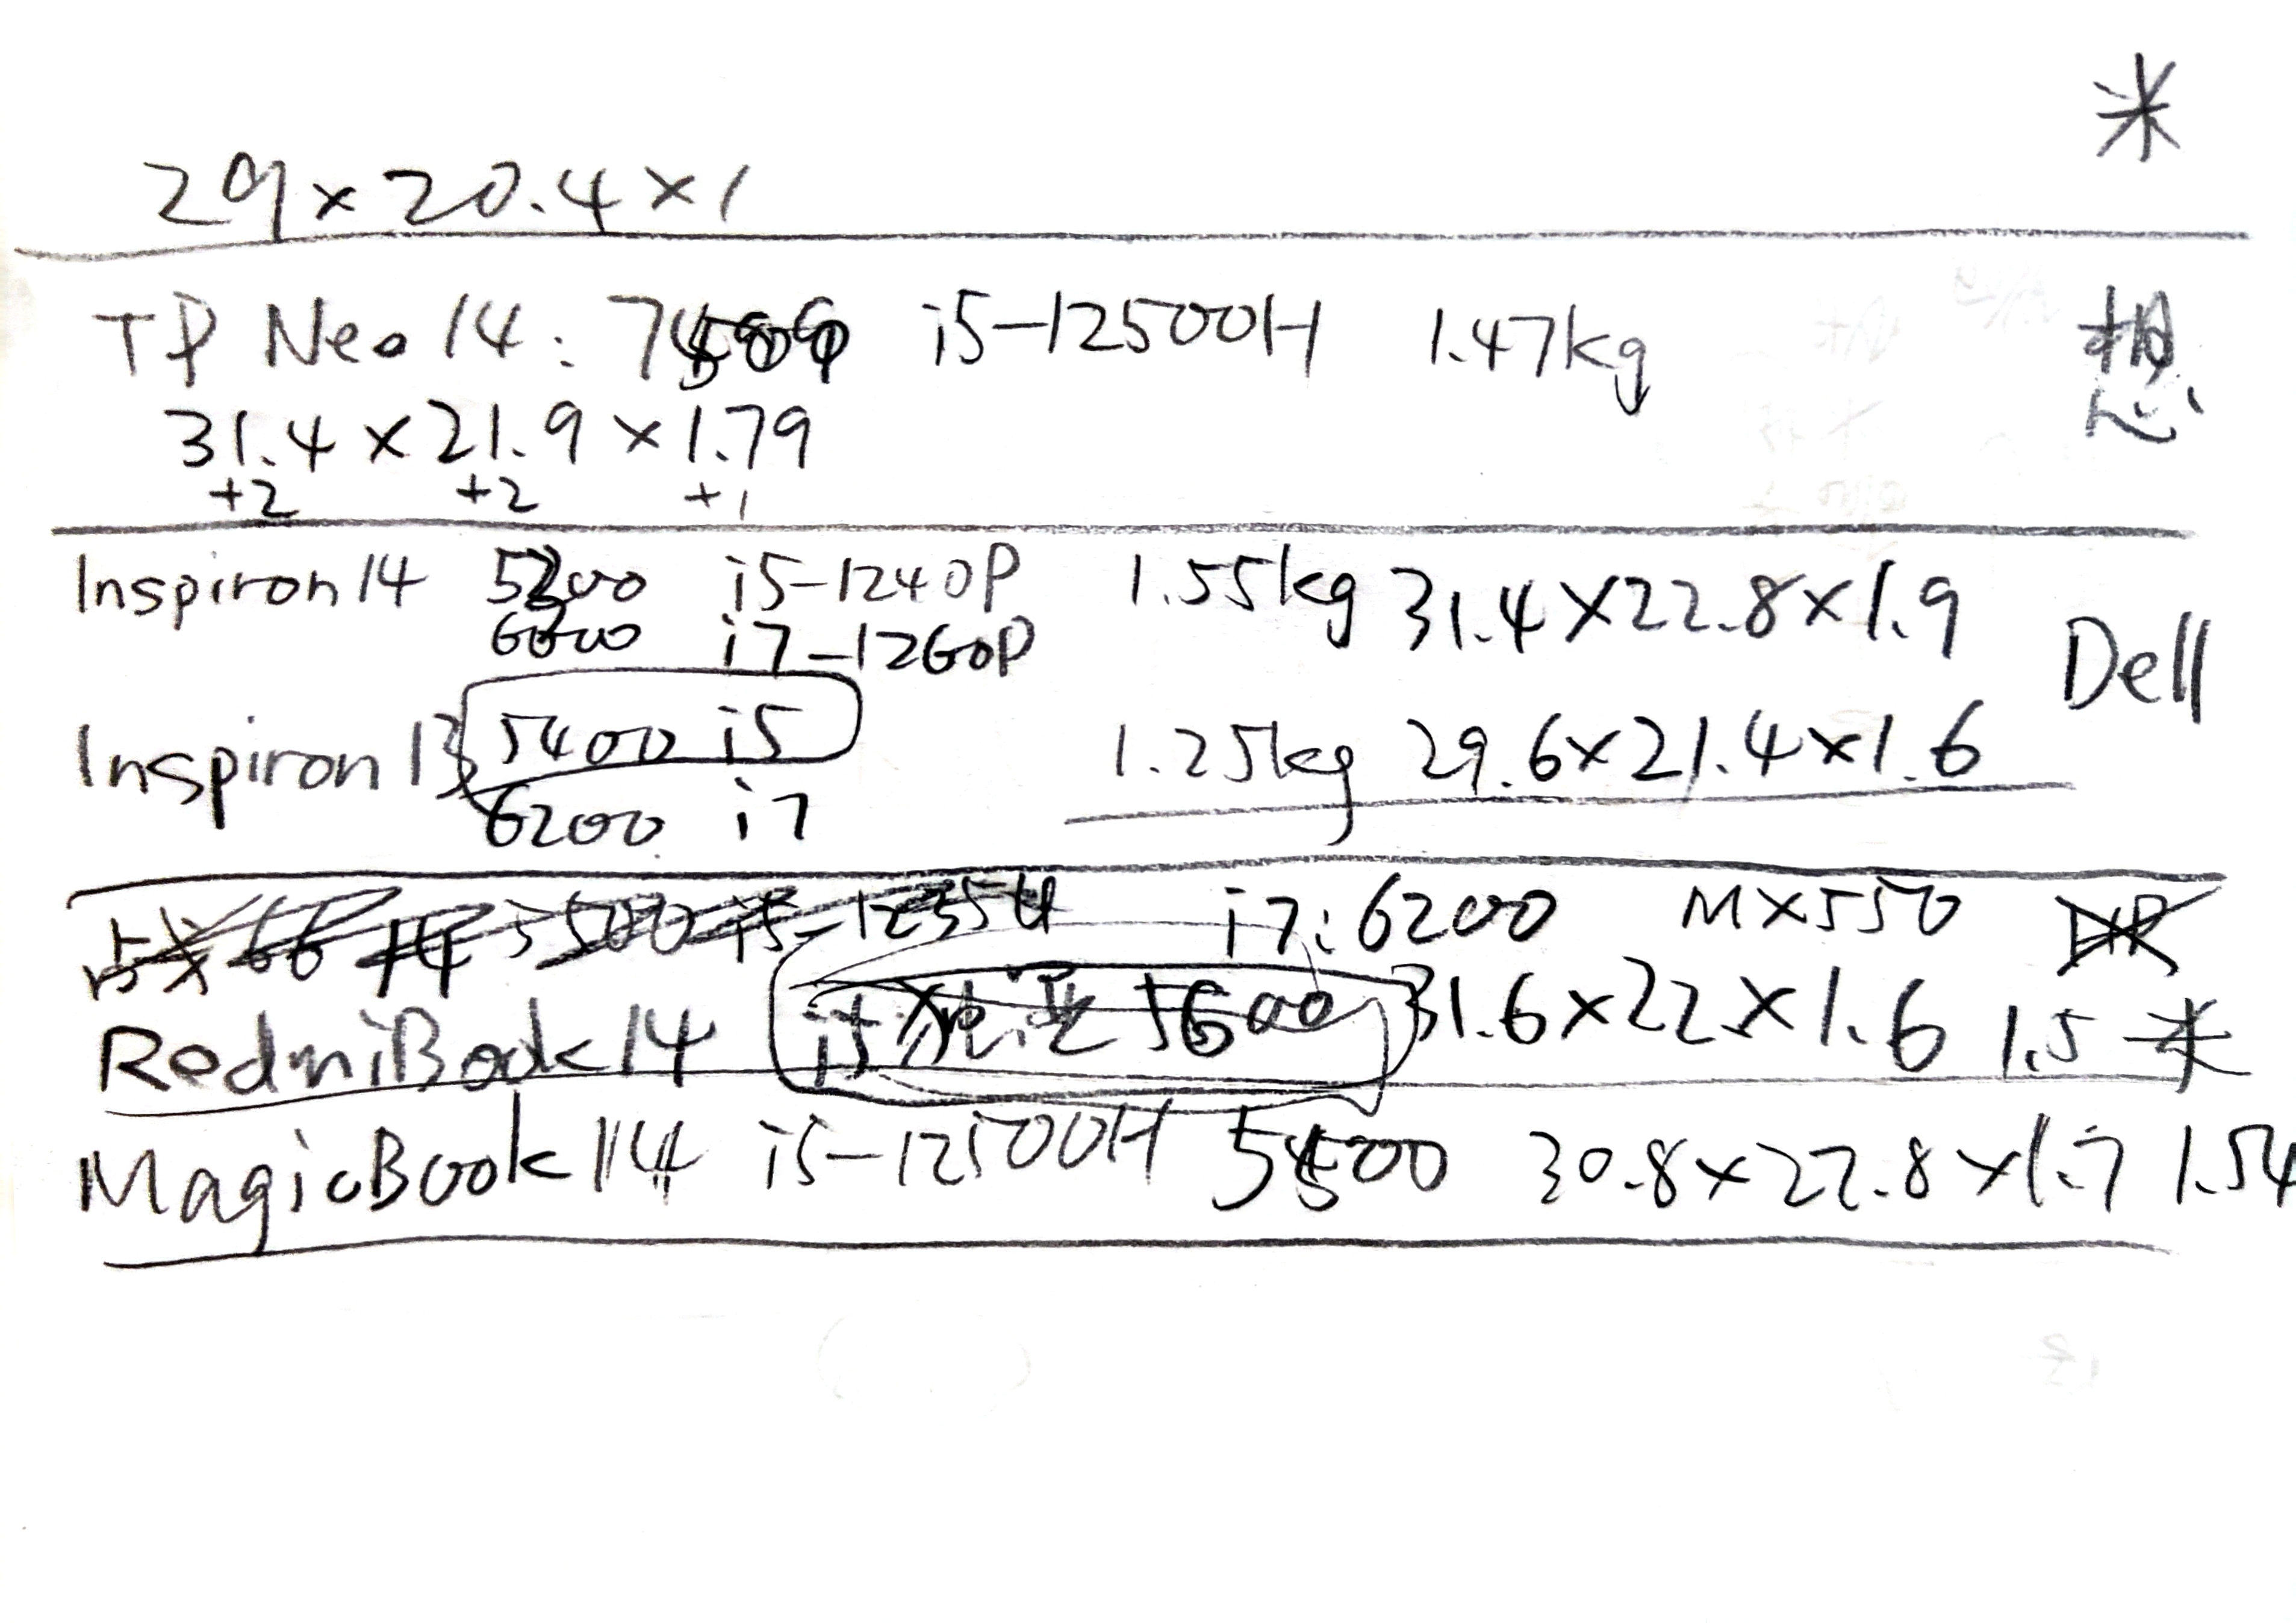 米
29×20.4×1
TP Neo 14: i5-12500H 1.47kg 想
31.4×21.9×1.79
+2 +2 +1
Inspiron 14 i5-1240P 1.55kg 31.4×22.8×1.9
i7-1260P
Dell
Inspiron 13 5400 i5 1.25kg 29.6×21.4×1.6
6200 i7
战66 14 5500 i5-1235U i7:6200 MX550 HP
RedmiBook 14 i5 独显 5600 31.6×22×1.6 1.5 米
MagicBook 14 i5-12500H 5500 30.8×22.8×1.7 1.54